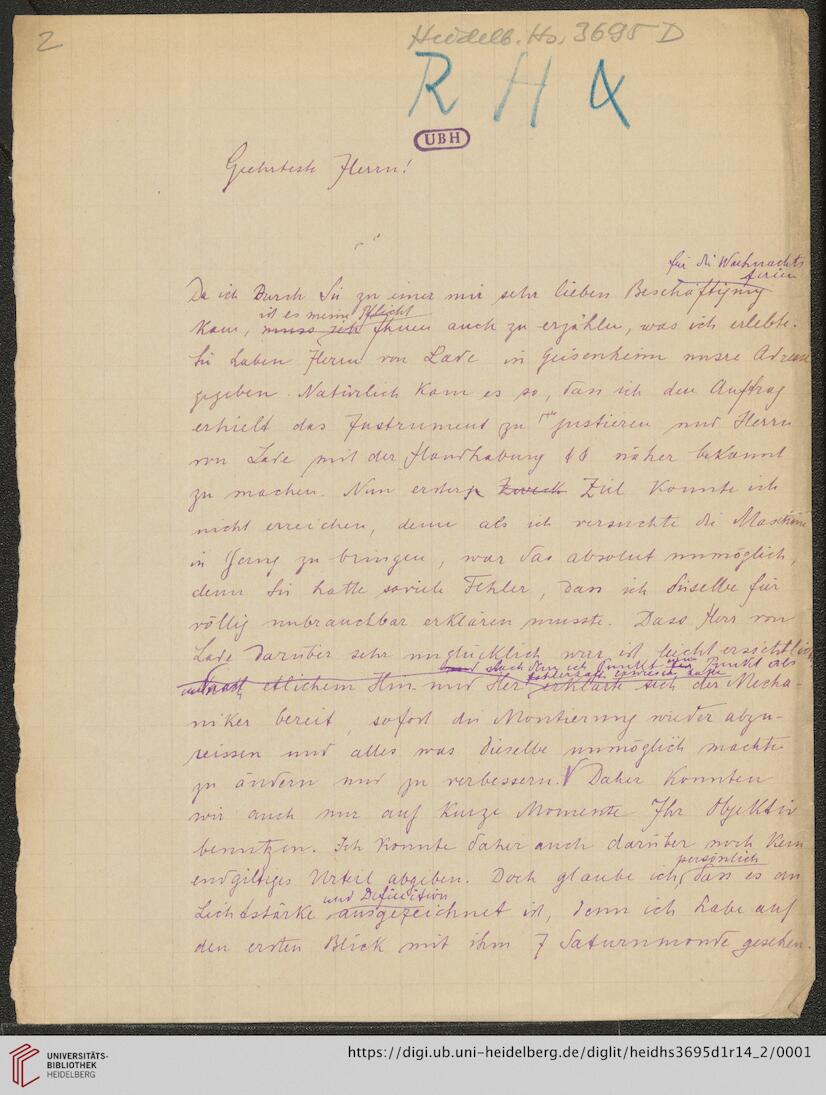 2
Heidelb. Hs. 3695 D
R H
UBH
Geehrteste Herrn!
für die Weihnachts
ferien
Da ich durch Sie zu einer mir sehr lieben Beschäftigung
ist es meine Pflicht
kam, muss ich Ihnen auch zu erzählen, was ich erlebte.
Sie haben Herrn von Lade in Geisenheim unsre Adresse
gegeben. Natürlich kam es so, dass ich den Auftrag
erhielt das Instrument zu justieren und Herrn
von Lade mit der Handhabung näher bekannt
zu machen. Nun Zweck Ziel konnte ich
nicht erreichen, denn als ich versuchte die Maschine
in Gang zu bringen, war das absolut unmöglich,
denn Sie hatte soviele Fehler, dass ich dieselbe für
völlig unbrauchbar erklären musste. Dass Herr von
Lade darüber sehr unglücklich war ist leicht ersichtlich
Nachdem ich Punkt Punkt als
fehlerhaft erwiesen hatte
etlichem Hin und Her erklärte sich der Mecha-
niker bereit, sofort die Montierung wieder abzu-
reissen und alles was dieselbe unmöglich machte
zu ändern und zu verbessern. Daher konnten
wir auch nur auf kurze Momente Ihr Objektiv
benutzen. Ich konnte daher auch darüber noch kein
endgiltiges Urteil abgeben. Doch glaube ich, dass es an
persönlich
und Definition
Lichtstärke ausgezeichnet ist, denn ich habe auf
den ersten Blick mit ihm 7 Saturnmonde gesehen.
UNIVERSITÄTS-
BIBLIOTHEK
HEIDELBERG
https://digi.ub.uni-heidelberg.de/diglit/heidhs3695d1r14_2/0001